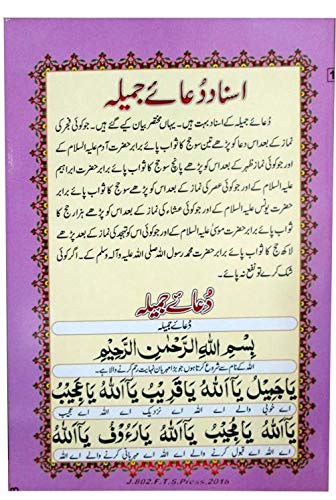 اسناد دُعائے جمیلہ
دُعائے جمیلہ کے اسناد بہت ہیں۔ یہاں مختصر بیان کیے گئے ہیں۔ جو کوئی فجر کی
نماز کے بعد اس دعا کو پڑھے تین سو حج کا ثواب پائے برابر حضرت آدم علیہ السلام کے
اور جو کوئی نماز ظہر کے بعد اس کو پڑھے پانچ سو حج کا ثواب پائے برابر حضرت ابراہیم
علیہ السلام کے اور جو کوئی عصر کی نماز کے بعد اس کو پڑھے سو حج کا ثواب پائے برابر
حضرت یونس علیہ السلام کے اور جو کوئی عشاء کی نماز کے بعد اس کو پڑھے ہزار حج کا
ثواب پائے برابر حضرت موسیٰ علیہ السلام کے اور جو کوئی اس کو تہجد کی نماز کے بعد پڑھے
لاکھ حج کا ثواب پائے برابر حضرت محمد رسول اللہ صلی اللہ علیہ وآلہ وسلم کے۔ اگر کوئی
شک کرے تو نفع نہ پائے۔
دُعائے جمیلہ
دعائے جمیلہ
بِسْمِ اللهِ الرَّحْمٰنِ الرَّحِيْمِ
اللہ کے نام سے شروع کرتا ہوں جو بڑا مہربان نہایت رحم کرنے والا ہے۔
يَا جَمِيْلُ يَآ اَللهُ يَا قَرِيْبُ يَآ اَللهُ يَا عَجِيْبُ
اے خوبی والے اے اللہ اے نزدیک اے اللہ اے عجیب
يَآ اَللهُ يَا مُجِيْبُ يَآ اَللهُ يَا رَءُوْفُ يَآ اَللهُ
اے اللہ اے قبول کرنے والے اے اللہ اے مہربانی کرنے والے اے اللہ
J.802.F.T.S.Press.2016